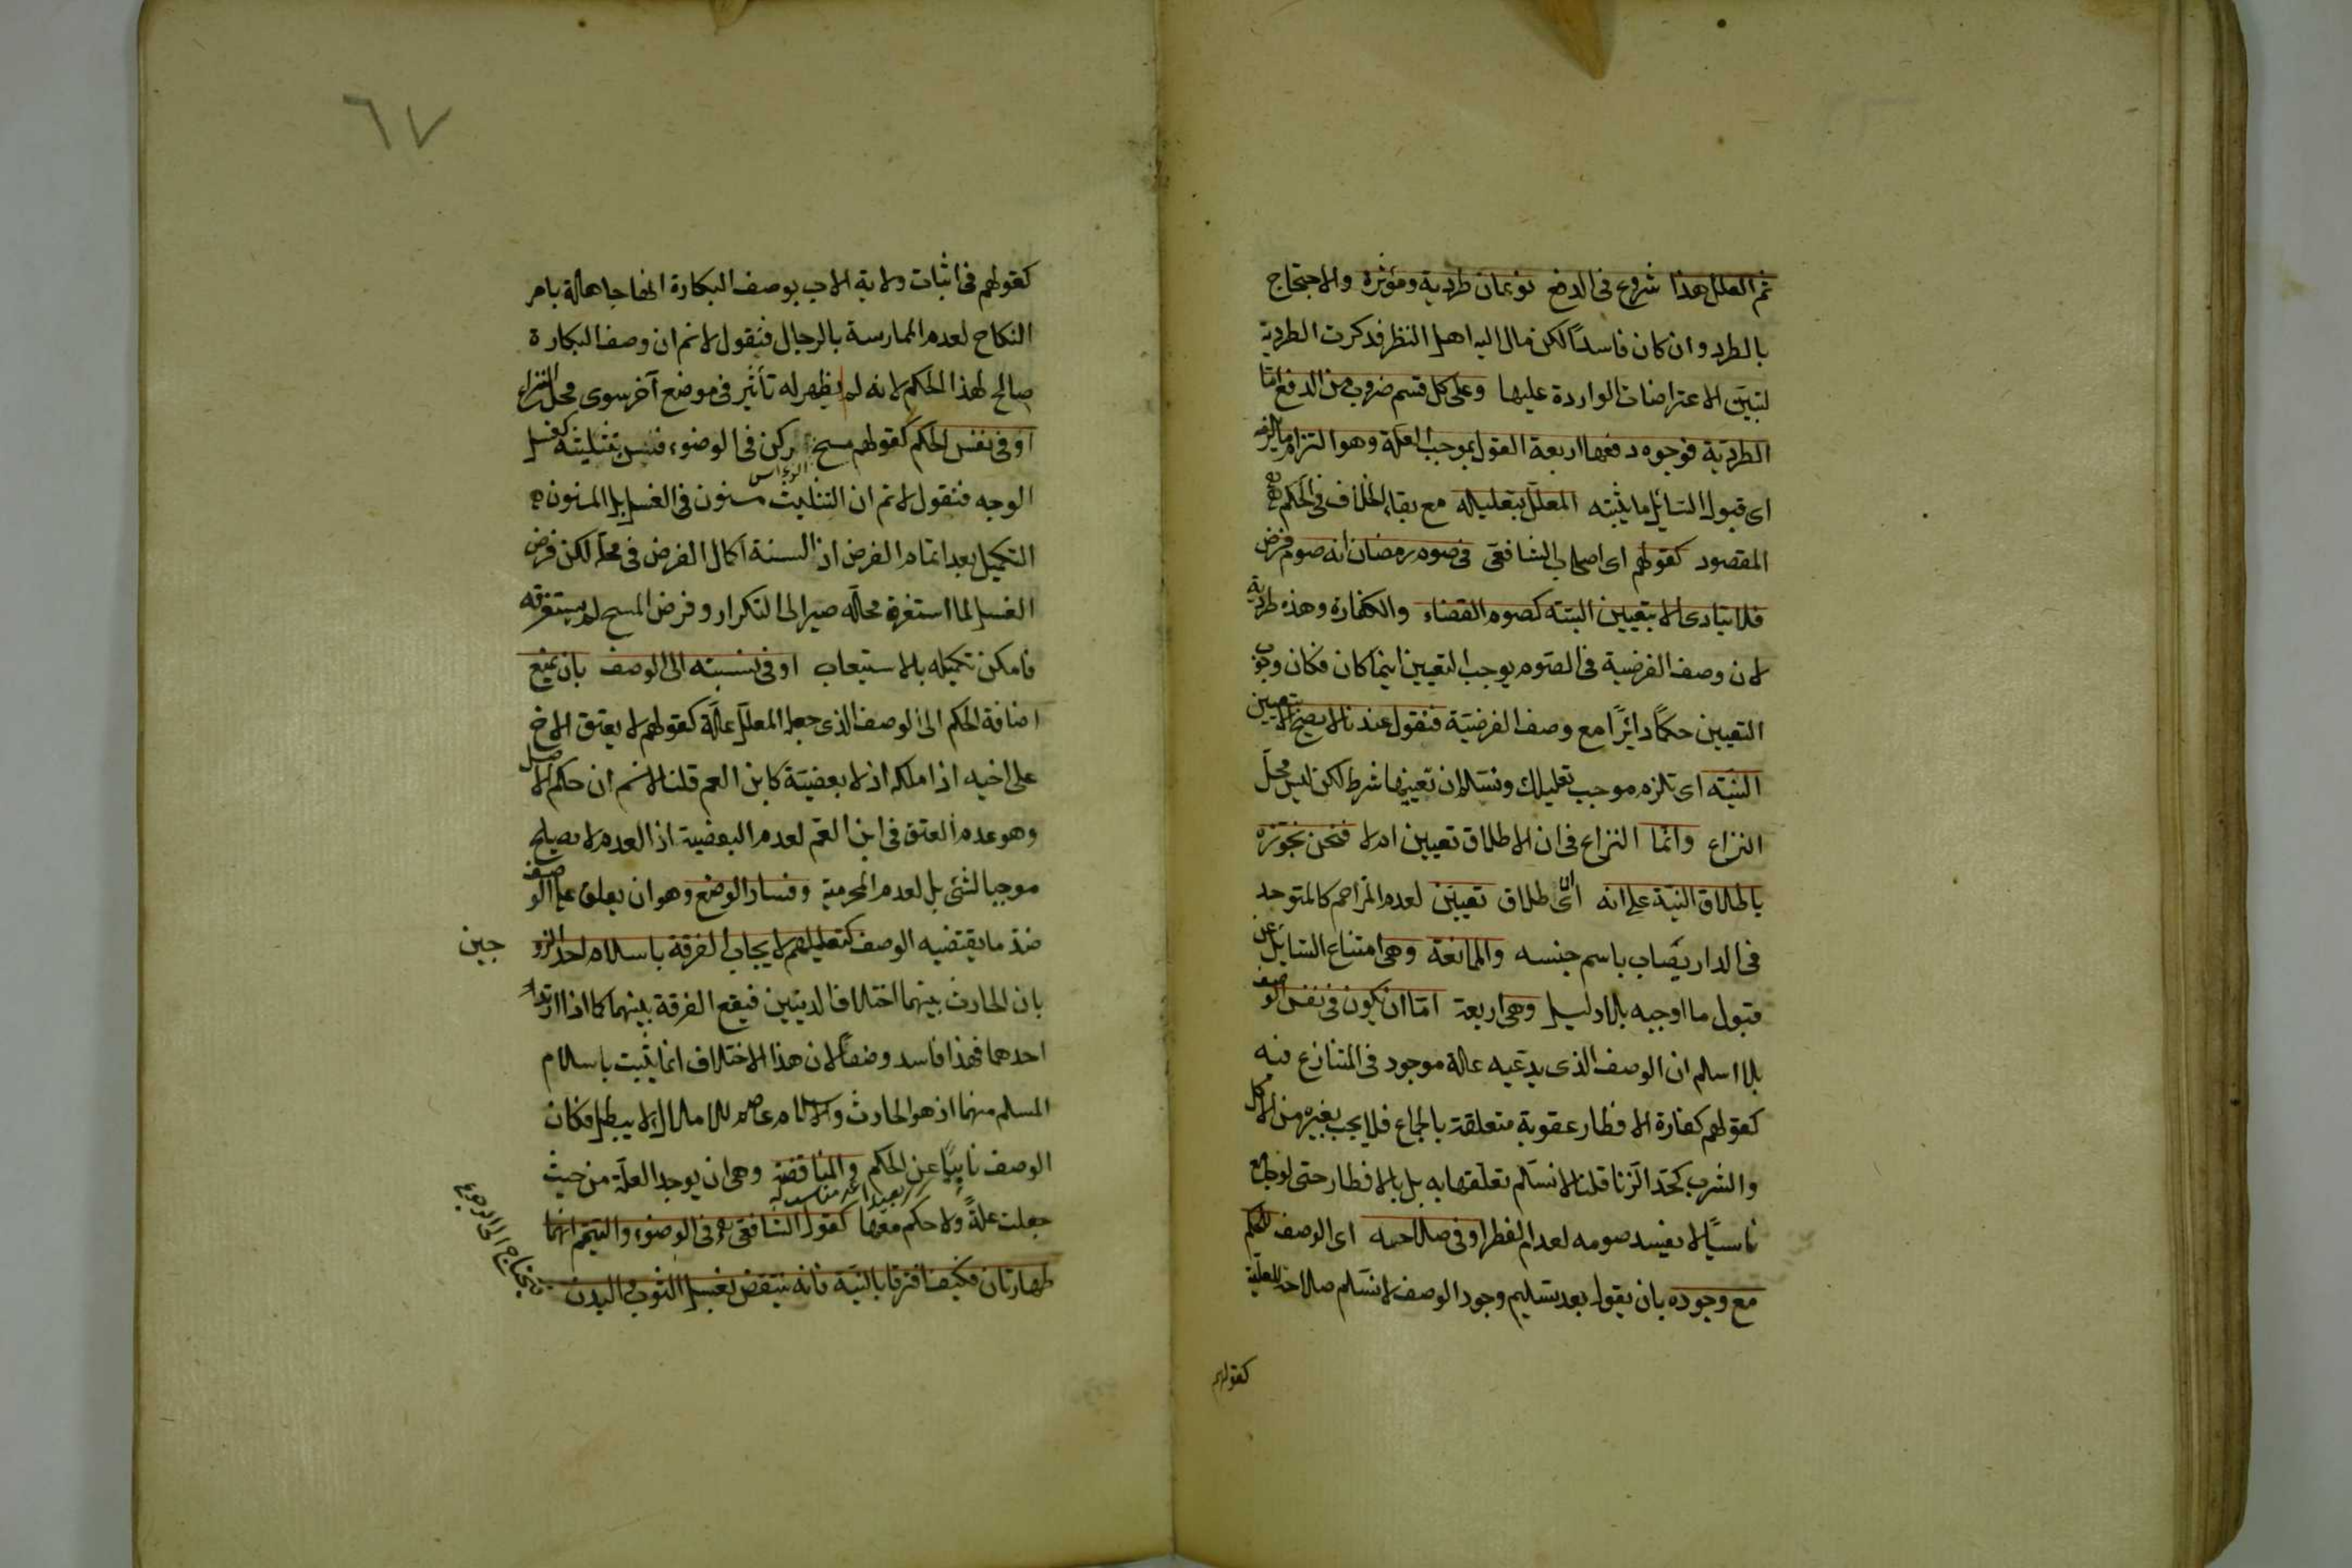 ثم العلل هذا شروع فى الدفع نوعان طردية ومؤثرة والاحتجاج
بالطرد وان كان فاسداً لكن مال اليه اهل النظر فذكرت الطردية
لتبيّن الاعتراضات الواردة عليها وعلى كل قسم ضروب من الدفع امّا
الطرديّة فوجوه دفعها اربعة القول بموجب العلّة وهو التزام ما يلزمه
اى قبول السّايل ما يثبته المعلّل بتعليله مع بقاء الخلاف فى الحكم
المقصود كقولهم اى اصحاب الشافعى فى صوم رمضان انه صوم فرض
فلا يتادى الا بتعيين النيّة كصوم القضاء والكفارة وهذه طردية
لان وصف الفرضية فى الصّوم يوجب التعيين اينما كان فكان وجوب
التعيين حكماً دائراً مع وصف الفرضيّة فنقول عندنا لا يصح الا بتعيين
النيّة اى نلزم موجب تعليلك ونسلم ان تعيينها شرط لكن ليس محلّ
النزاع وانّما النزاع فى ان الاطلاق تعيين ام لا فنحن نجوّزه
باطلاق النيّة على انه اى الاطلاق تعيين لعدم المزاحم كالمتوحد
فى الدار يصاب باسم جنسه والممانعة وهى امتناع السّايل عن
قبول ما اوجبه بلا دليل وهى اربعة امّا ان يكون فى نفس الوصف
بلا اسلم ان الوصف الذى يدّعيه علة موجود فى المتنازع فيه
كقولهم كفارة الافطار عقوبة متعلقة بالجماع فلا يجب بغيره من الاكل
والشرب كحدّ الزنا قلنا لا نسلّم تعلّقها به بل بالافطار حتى لو جامع
ناسياً لا يفسد صومه لعدم الفطر او فى صلاحه اى الوصف للحكم
مع وجوده بان يقول بعد تسليم وجود الوصف لا نسلّم صلاحه للعلّية
كقولهم
٦٧
كقولهم فى اثبات ولاية الاب بوصف البكارة انها جاهلة بامر
النكاح لعدم الممارسة بالرجال فنقول لا نم ان وصف البكارة
صالح لهذا الحكم لانه لم يظهر له تأثير فى موضع آخر سوى محل النزاع
او فى نفس الحكم كقولهم مسح الرأس ركن فى الوضوء فيسن تثليثه كغسل
الوجه فنقول لا نم ان التثليث مسنون فى الغسل بل المسنون
التكميل بعد اتمام الفرض اذ السنة اكمال الفرض فى محلّه لكن فرض
الغسل لما استغرق محلّه صير الى التكرار وفرض المسح لم يستغرقه
فامكن تكميله بالاستيعاب او فى نسبته الى الوصف بان يمنع
اضافة الحكم الى الوصف الذى جعله المعلّل علّة كقولهم لا يعتق الاخ
على اخيه اذا ملكه اذ لا بعضيّة كابن العم قلنا لا نسلم ان حكم الاصل
وهو عدم العتق فى ابن العمّ لعدم البعضية اذ العدم لا يصلح
موجبا لشئ بل لعدم المحرمية وفساد الوضع وهو ان يعلق على الوصف
ضدّ ما يقتضيه الوصف كتعليلهم لايجاب الفرقة باسلام احد الزوجين
بان الحادث بينهما اختلاف الدينين فيقع الفرقة بينهما كما اذا ارتد
احدهما فهذا فاسد وضعاً لان هذا الاختلاف انما يثبت باسلام
المسلم منهما اذ هو الحادث والاسلام عاصم للاملاك لا يبطل فكان
الوصف نابياً عن الحكم والمناقضة وهى ان يوجد العلّة من حيث
جعلت علّةً ولا حكم معها كقول الشافعى فى الوضوء والتيمّم انهما
طهارتان فكيف افترقا بالنيّة فانه ينتقض بغسل الثوب والبدن